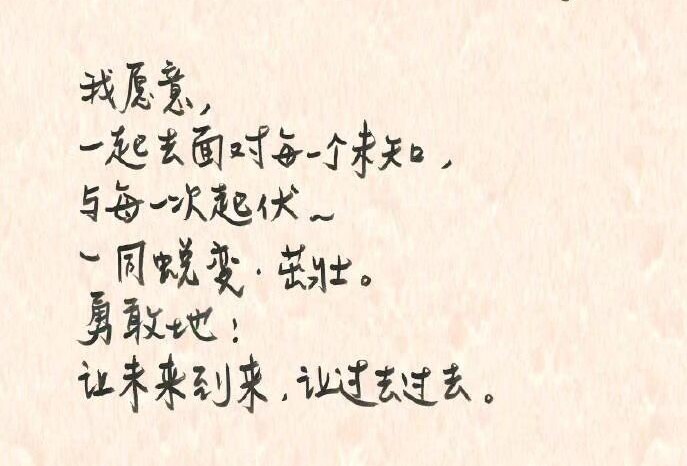 我愿意，
一起去面对每一个未知，
与每一次起伏～
一同蜕变·茁壮。
勇敢地：
让未来到来，让过去过去。